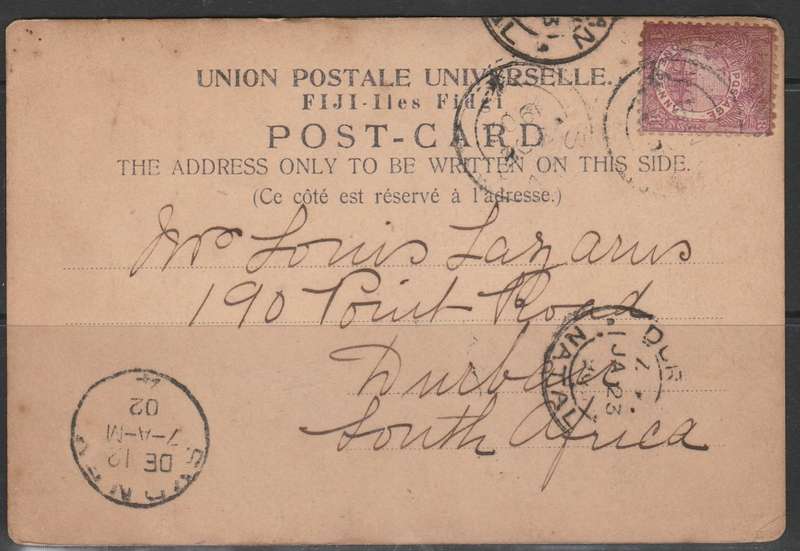 UNION POSTALE UNIVERSELLE.
FIJI-Iles Fidgi
POST-CARD
THE ADDRESS ONLY TO BE WRITTEN ON THIS SIDE.
(Ce côté est réservé à l'adresse.)
Louis Lazarus
190 Point Road
Durban
South Africa
DUR
JA 23
NATAL
SYDNEY
DE 12
7-A-M
02
4
POSTAGE